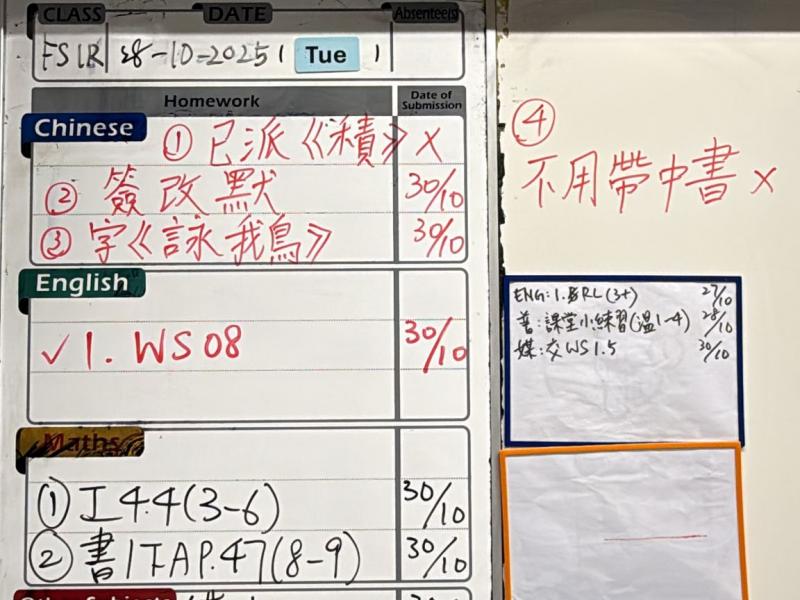 CLASS DATE Absentee(s)
28-10-2025 ( Tue )
Homework Date of Submission
Chinese
① 已派《積》 X
② 簽改默 30/10
③ 字《詠我鳥》 30/10
English
✓ 1. WS08 30/10
Maths
① 工4.4(3-6) 30/10
② 書1下A P.47(8-9) 30/10
④
不用帶中書 X
ENG: 1. RL (3+) 27/10
普: 課堂小練習(溫1-4) 28/10
媒: 交WS1.5 30/10